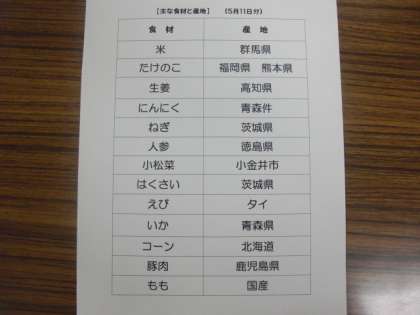 【主な食材と産地】 (5月11日分)
食材 産地
米 群馬県
たけのこ 福岡県 熊本県
生姜 高知県
にんにく 青森件
ねぎ 茨城県
人参 徳島県
小松菜 小金井市
はくさい 茨城県
えび タイ
いか 青森県
コーン 北海道
豚肉 鹿児島県
もも 国産